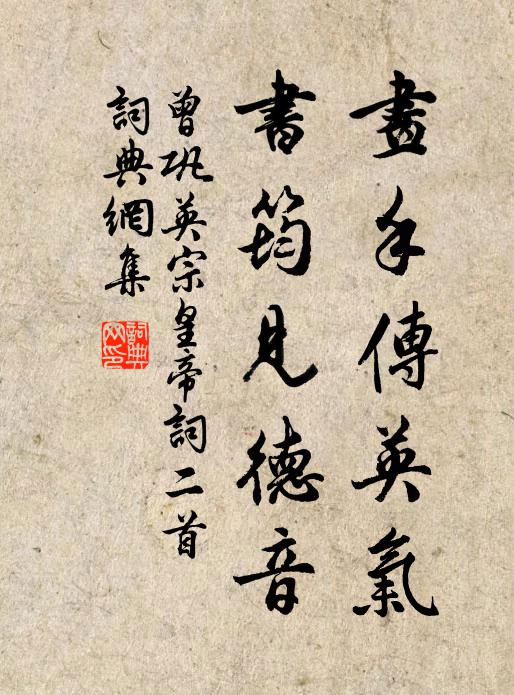 畫手傳英氣
書筠見德音
曾巩英宗皇帝詞二首
詞典網集
詞典網印